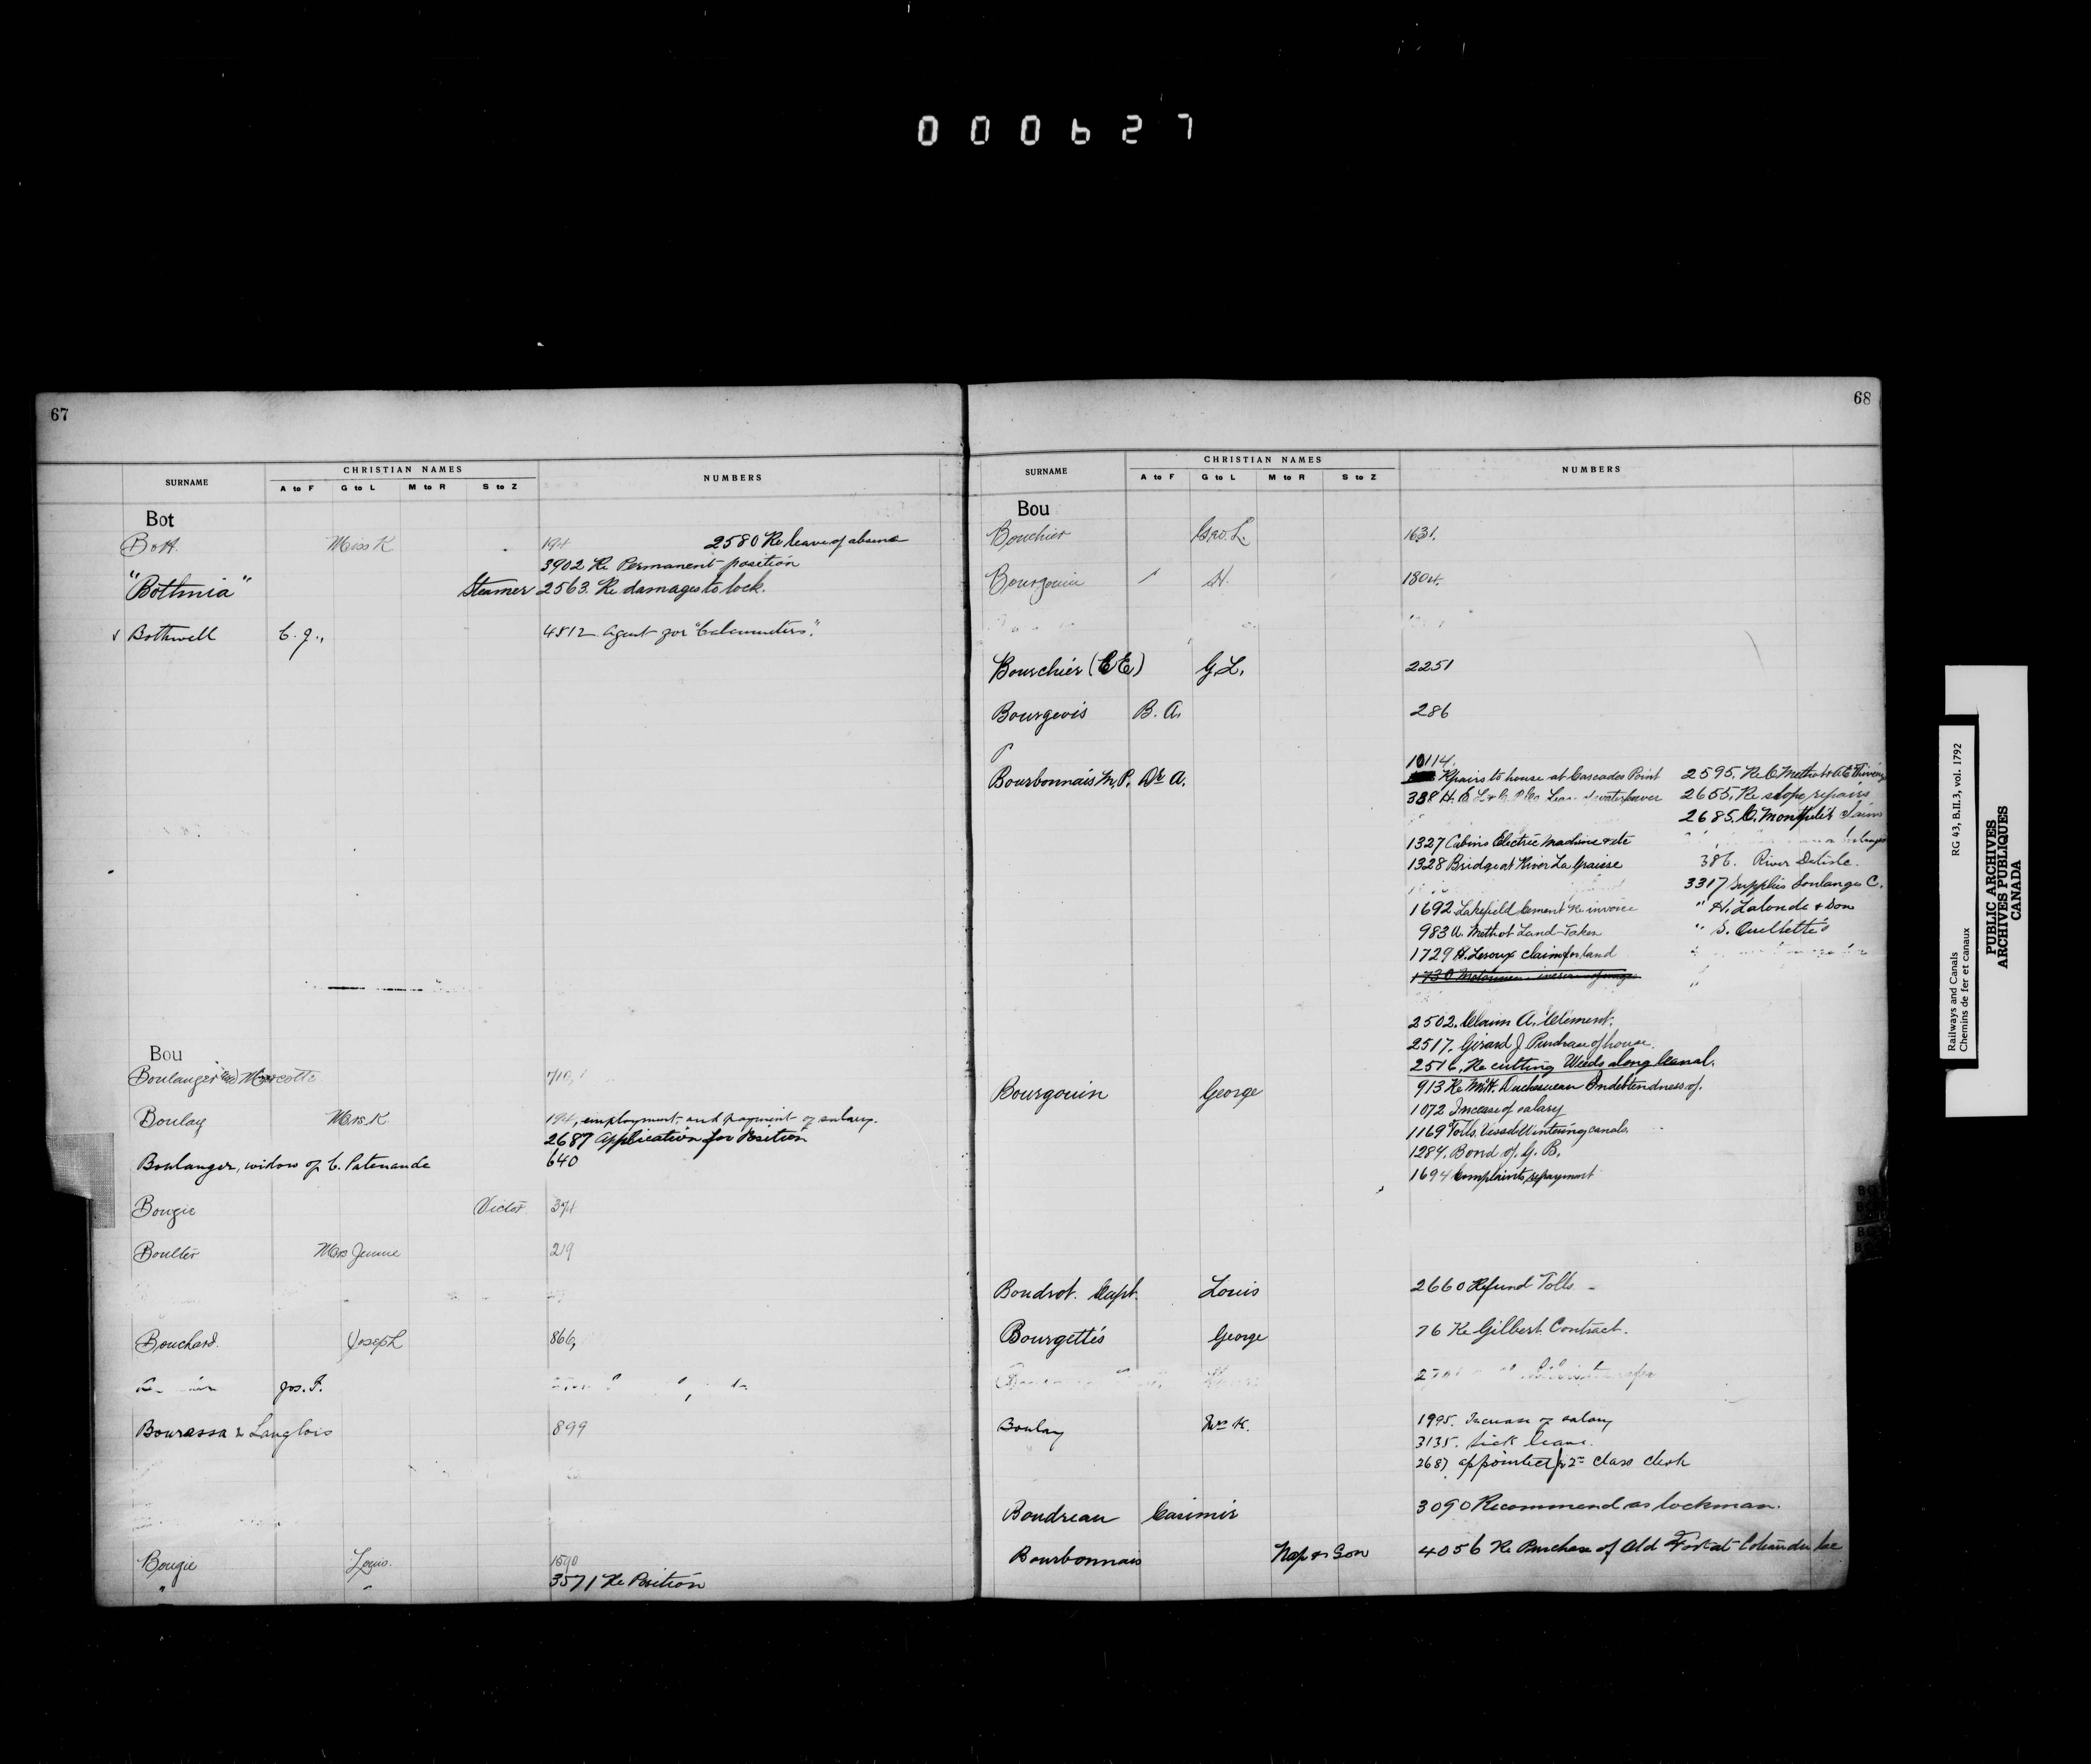 000627
67
SURNAME CHRISTIAN NAMES NUMBERS
A to F G to L M to R S to Z
Bot
Bott. Miss K 194 2580 Re leave of absence
3902 Re Permanent position
"Bothnia" Steamer 2563. Re damages to lock.
Bothwell C. J., 4512 Agent for "Calcumeters."
Bou
Boulanger and Marcotte 710,
Boulay Mrs. K. 194, employment, and payment of salary.
2687 Application for Position
Boulanger, widow of C. Patenaude 640
Bougie Victor 374
Boulter Mrs Jennie 219
Bouchard. Joseph 866,
Jos. F.
Bourassa & Langlois 899
Bougie Louis. 1590
" " 3571 Re Position
68
SURNAME CHRISTIAN NAMES NUMBERS
A to F G to L M to R S to Z
Bou
Bouchier Geo. L. 1631.
Bourgouin H. 1804.
Bourchier (C.E) G. L. 2251
Bourgeois B. A. 286
Bourbonnais M.P. Dr A. 10114.
Repairs to house at Cascades Point
338 H. Lease of waterpower
1327 Cabins Electric Machine & etc
1328 Bridge at River La Graisse
1692 Lakefield Cement Re invoice
983 A. Methot Land Taken
1729 H. Leroux claim for land
1730 increase of wages
2502. Claim A. Clement.
2517. Girard J. Purchase of house.
2516. Re cutting Weeds along Canal.
2595. Re C Methot &
2655. Re slope repairs
2685. C. Montpetit claim
386. River Delisle.
3317 Supplies Soulanges C.
" H. Lalonde & Son
" S. Ouellette's
Bourgouin George 913 Re Duchesneau Indebtendness of.
1072 Increase of salary
1169 Tolls. Vessels Wintering canals.
1284. Bond of G. B.
1694 Complaints, repayment
Boudrot. Capt. Louis 2660 Refund Tolls.
Bourgettés George 76 Re Gilbert Contract.
Boulay Mrs K. 1995. Increase of salary
3135. Sick leave.
2687 appointed 2nd class clerk
Boudreau Casimir 3090 Recommend as lockman.
Bourbonnais Nap & Son 4056 Re Purchase of Old Fort at Coteau du Lac
Railways and Canals RG 43, B.II.3, vol. 1792
Chemins de fer et canaux
PUBLIC ARCHIVES
ARCHIVES PUBLIQUES
CANADA